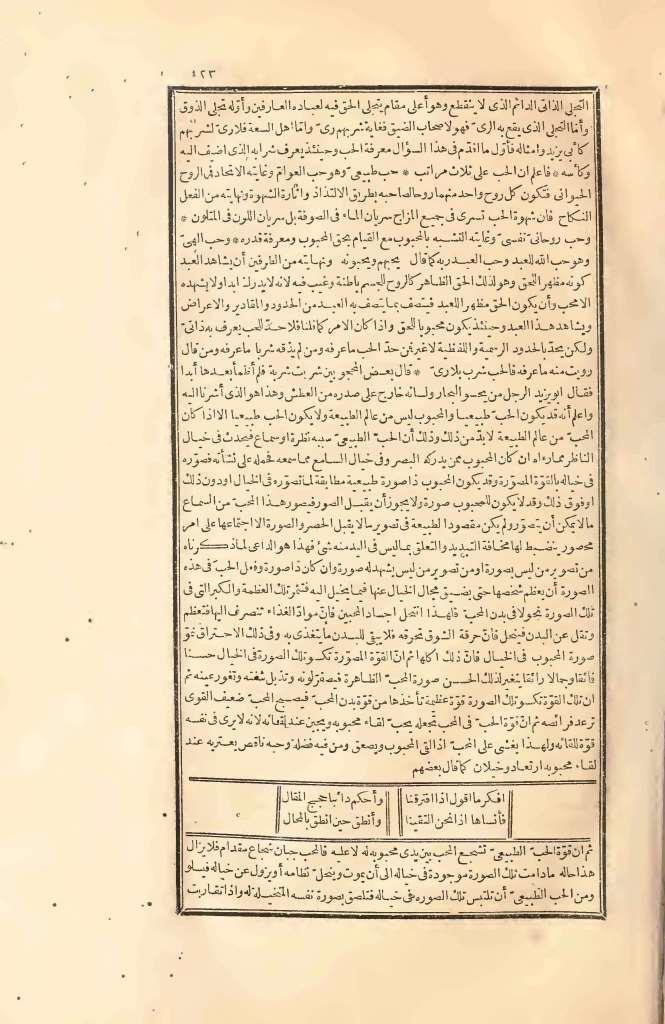 ٤٢٣
التجلى الذاتى الدائم الذى لا ينقطع وهو أعلى مقام يتجلى الحق فيه لعباده العارفين وأوله تجلى الذوق
وأما التجلى الذى يقع به الرى فهو لاصحاب الضيق فغاية شربهم رى وأما أهل السعة فلا رى لشربهم
كأبى يزيد وأمثاله فأول ما أقدم فى هذا السؤال معرفة الحب وحينئذ يعرف شرابه الذى اضيف اليه
وكأسه * فاعلم ان الحب على ثلاث مراتب * حب طبيعى وهو حب العوام وغايته الاتحاد فى الروح
الحيوانى فتكون كل روح واحد منهما روحا لصاحبه بطريق الالتذاذ واثارة الشهوة ونهايته من الفعل
النكاح فان شهوة الحب تسرى فى جميع المزاج سريان الماء فى الصوفة بل سريان اللون فى المتلون *
وحب روحانى نفسى وغايته التشبه بالمحبوب مع القيام بحق المحبوب ومعرفة قدره * وحب الهى
وهو حب الله للعبد وحب العبد ربه كما قال يحبهم ويحبونه ونهايته من الطرفين أن يشاهد العبد
كونه مظهر اللحق وهو لذلك الحق الظاهر كالروح للجسم باطنة وغيب فيه لانه لا يدرك ابدا ولا يشهده
الا محب وأن يكون الحق مظهر اللعبد فيتصف بما يتصف به العبد من الحدود والمقادير والاعراض
ويشاهد هذا العبد وحينئذ يكون محبوبا للحق واذا كان الامر كما قلنا فلا حد للحب يعرف به ذاتى
ولكن يحد بالحدود الرسمية واللفظية لا غير فمن حد الحب ما عرفه ومن لم يذقه شربا ما عرفه ومن قال
رويت منه ما عرفه فالحب شرب بلا رى * قال بعض المحجوبين شربت شربة فلم أظمأ بعدها أبدا
فقال ابو يزيد الرجل من يحسو البحار ولسانه خارج على صدره من العطش وهذا هو الذى أشرنا اليه
واعلم أنه قد يكون الحب طبيعيا والمحبوب ليس من عالم الطبيعة ولا يكون الحب طبيعيا الا اذا كان
المحب من عالم الطبيعة لا بد من ذلك وذلك أن الحب الطبيعى سببه نظرة او سماع فيحدث فى خيال
الناظر مما رآه ان كان المحبوب ممن يدركه البصر وفى خيال السامع مما سمعه فحمله على نشأته فصوره
فى خياله بالقوة المصورة وقد يكون المحبوب ذا صورة طبيعية مطابقة لما تصوره فى الخيال او دون ذلك
او فوق ذلك وقد لا يكون للمحبوب صورة ولا يجوز أن يقبل الصور فيصور هذا المحب من السماع
ما لا يمكن أن يتصور ولم يكن مقصود الطبيعة فى تصوير ما لا يقبل الحصر والصورة الا اجتماعها على امر
محصور ينضبط لها مخافة التبديد والتعلق بما ليس فى اليد منه شئ فهذا هو الداعى لما ذكرناه
من تصوير من ليس بصورة او من تصوير من ليس يشهد له صورة وان كان ذا صورة وفعل الحب فى هذه
الصورة أن يعظم شخصها حتى يضيق محال الخيال عنها فيما يخيل اليه فتثمر تلك العظمة والكبر التى فى
تلك الصورة نحولا فى بدن المحب فلهذا انتحل اجساد المحبين فان مواد الغذاء تنصرف اليها فتعظم
وتقل عن البدن فينحل فان حرقة الشوق تحرقه فلا يبقى للبدن ما يتغذى به وفى ذلك الاحتراق نمو
صورة المحبوب فى الخيال فان ذلك اكلها ثم ان القوة المصورة تكسو تلك الصورة فى الخيال حسنا
فائقا وجمالا رائقا يتغير لذلك الحسن صورة المحب الظاهرة فيصفر لونه وتذبل شفته وتغور عينه ثم
ان تلك القوة تكسو تلك الصورة قوة عظيمة تأخذها من قوة بدن المحب فيصبح المحب ضعيف القوى
ترعد فرائصه ثم ان قوة الحب فى المحب تجعله يحب لقاء محبوبه ويجبن عند لقائه لانه لا يرى فى نفسه
قوة للقائه ولهذا يغشى على المحب اذا لقى المحبوب ويصعق ومن فيه فضلة وحبه ناقص يعتريه عند
لقاء محبوبه ارتعاد وخبلان كما قال بعضهم
افكر ما اقول اذا افترقنا وأحكم دائبا حجج المقال
فأنساها اذا نحن التقينا وأنطق حين انطق بالمحال
ثم ان قوة الحب الطبيعى تشجع المحب بين يدى محبوبه له لا عليه فالمحب جبان شجاع مقدام فلا يزال
هذا حاله ما دامت تلك الصورة موجودة فى خياله الى أن يموت وينحل نظامه أو يزول عن خياله فيسلو
ومن الحب الطبيعى أن تلتبس تلك الصورة فى خياله فتلصق بصورة نفسه المتخيلة له واذا تقاربت